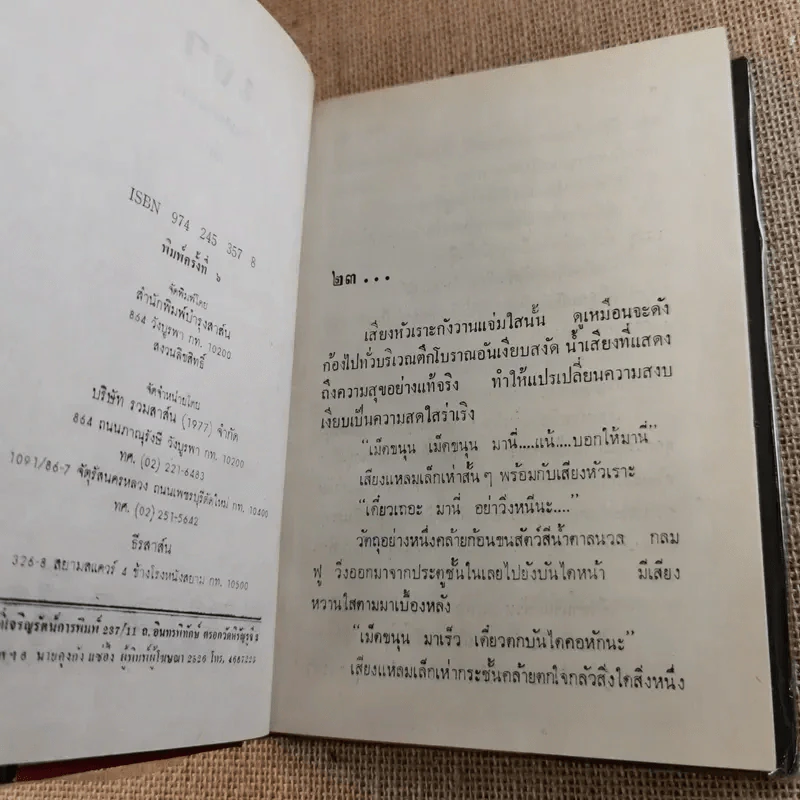 ISBN 974 245 357 8
พิมพ์ครั้งที่ ๖
จัดพิมพ์โดย
สำนักพิมพ์บำรุงสาส์น
864 วังบูรพา กท. 10200
สงวนลิขสิทธิ์
จัดจำหน่ายโดย
บริษัท รวมสาส์น (1977) จำกัด
864 ถนนภาณุรังษี วังบูรพา กท. 10200
ทศ. (02) 221-6483
1091/86-7 จัตุรัสนครหลวง ถนนเพชรบุรีตัดใหม่ กท. 10400
ทศ. (02) 251-5642
ธีรสาส์น
326-8 สยามสแควร์ 4 ข้างโรงหนังสยาม กท. 10500
เจริญรัตน์การพิมพ์ 237/11 ถ.อินทรพิทักษ์ ตรอกวัดหิรัญรูจี
นายคุงกัง แซ่อึง ผู้พิมพ์ผู้โฆษณา 2526 โทร.
๒๓...
เสียงหัวเราะกังวานแจ่มใสนั้น ดูเหมือนจะดัง
ก้องไปทั่วบริเวณตึกโบราณอันเงียบสงัด น้ำเสียงที่แสดง
ถึงความสุขอย่างแท้จริง ทำให้แปรเปลี่ยนความสงบ
เงียบเป็นความสดใสร่าเริง
“เม็ดขนุน เม็ดขนุน มานี่....แน้....บอกให้มานี่”
เสียงแหลมเล็กเห่าสั้นๆ พร้อมกับเสียงหัวเราะ
“เดี๋ยวเถอะ มานี่ อย่าวิ่งหนีนะ....”
วัตถุอย่างหนึ่งคล้ายก้อนขนสัตว์สีน้ำตาลนวล กลม
ฟู วิ่งออกมาจากประตูชั้นในเลยไปยังบันไดหน้า มีเสียง
หวานใสตามมาเบื้องหลัง
“เม็ดขนุน มาเร็ว เดี๋ยวตกบันไดคอหักนะ”
เสียงแหลมเล็กเห่ากระชั้นคล้ายตกใจกลัวสิ่งใดสิ่งหนึ่ง